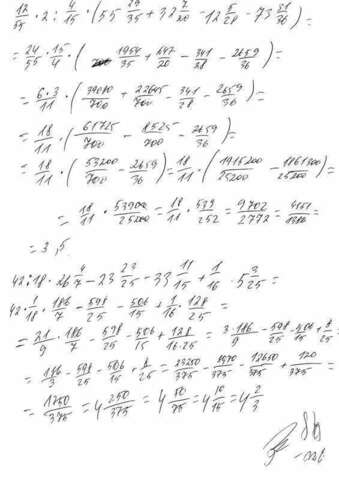 12/55 · 2 : 4/15 · (55 29/35 + 32 7/20 - 12 5/28 - 73 31/36) =
= 24/55 · 15/4 · (1954/35 + 647/20 - 341/28 - 2659/36) =
= 6·3/11 · (39080/700 + 22645/700 - 341/28 - 2659/36) =
= 18/11 · (61725/700 - 8525/700 - 2659/36) =
= 18/11 · (53200/700 - 2659/36) = 18/11 · (1915200/25200 - 1861300/25200) =
= 18/11 · 53900/25200 = 18/11 · 539/252 = 9702/2772 =
= 3,5.
42 : 18 · 26 4/7 - 23 23/25 - 33 11/15 + 1/16 · 5 3/25 =
42 · 1/18 · 186/7 - 598/25 - 506/15 + 1/16 · 128/25 =
= 21/9 · 186/7 - 598/25 - 506/15 + 128/16·25 = 3·186/9 - 598/25 - 506/15 + 8/25 =
= 186/3 - 598/25 - 506/15 + 8/25 = 23250/375 - 8970/375 - 12650/375 + 120/375 =
= 1750/375 = 4 250/375 = 4 50/75 = 4 10/15 = 4 2/3